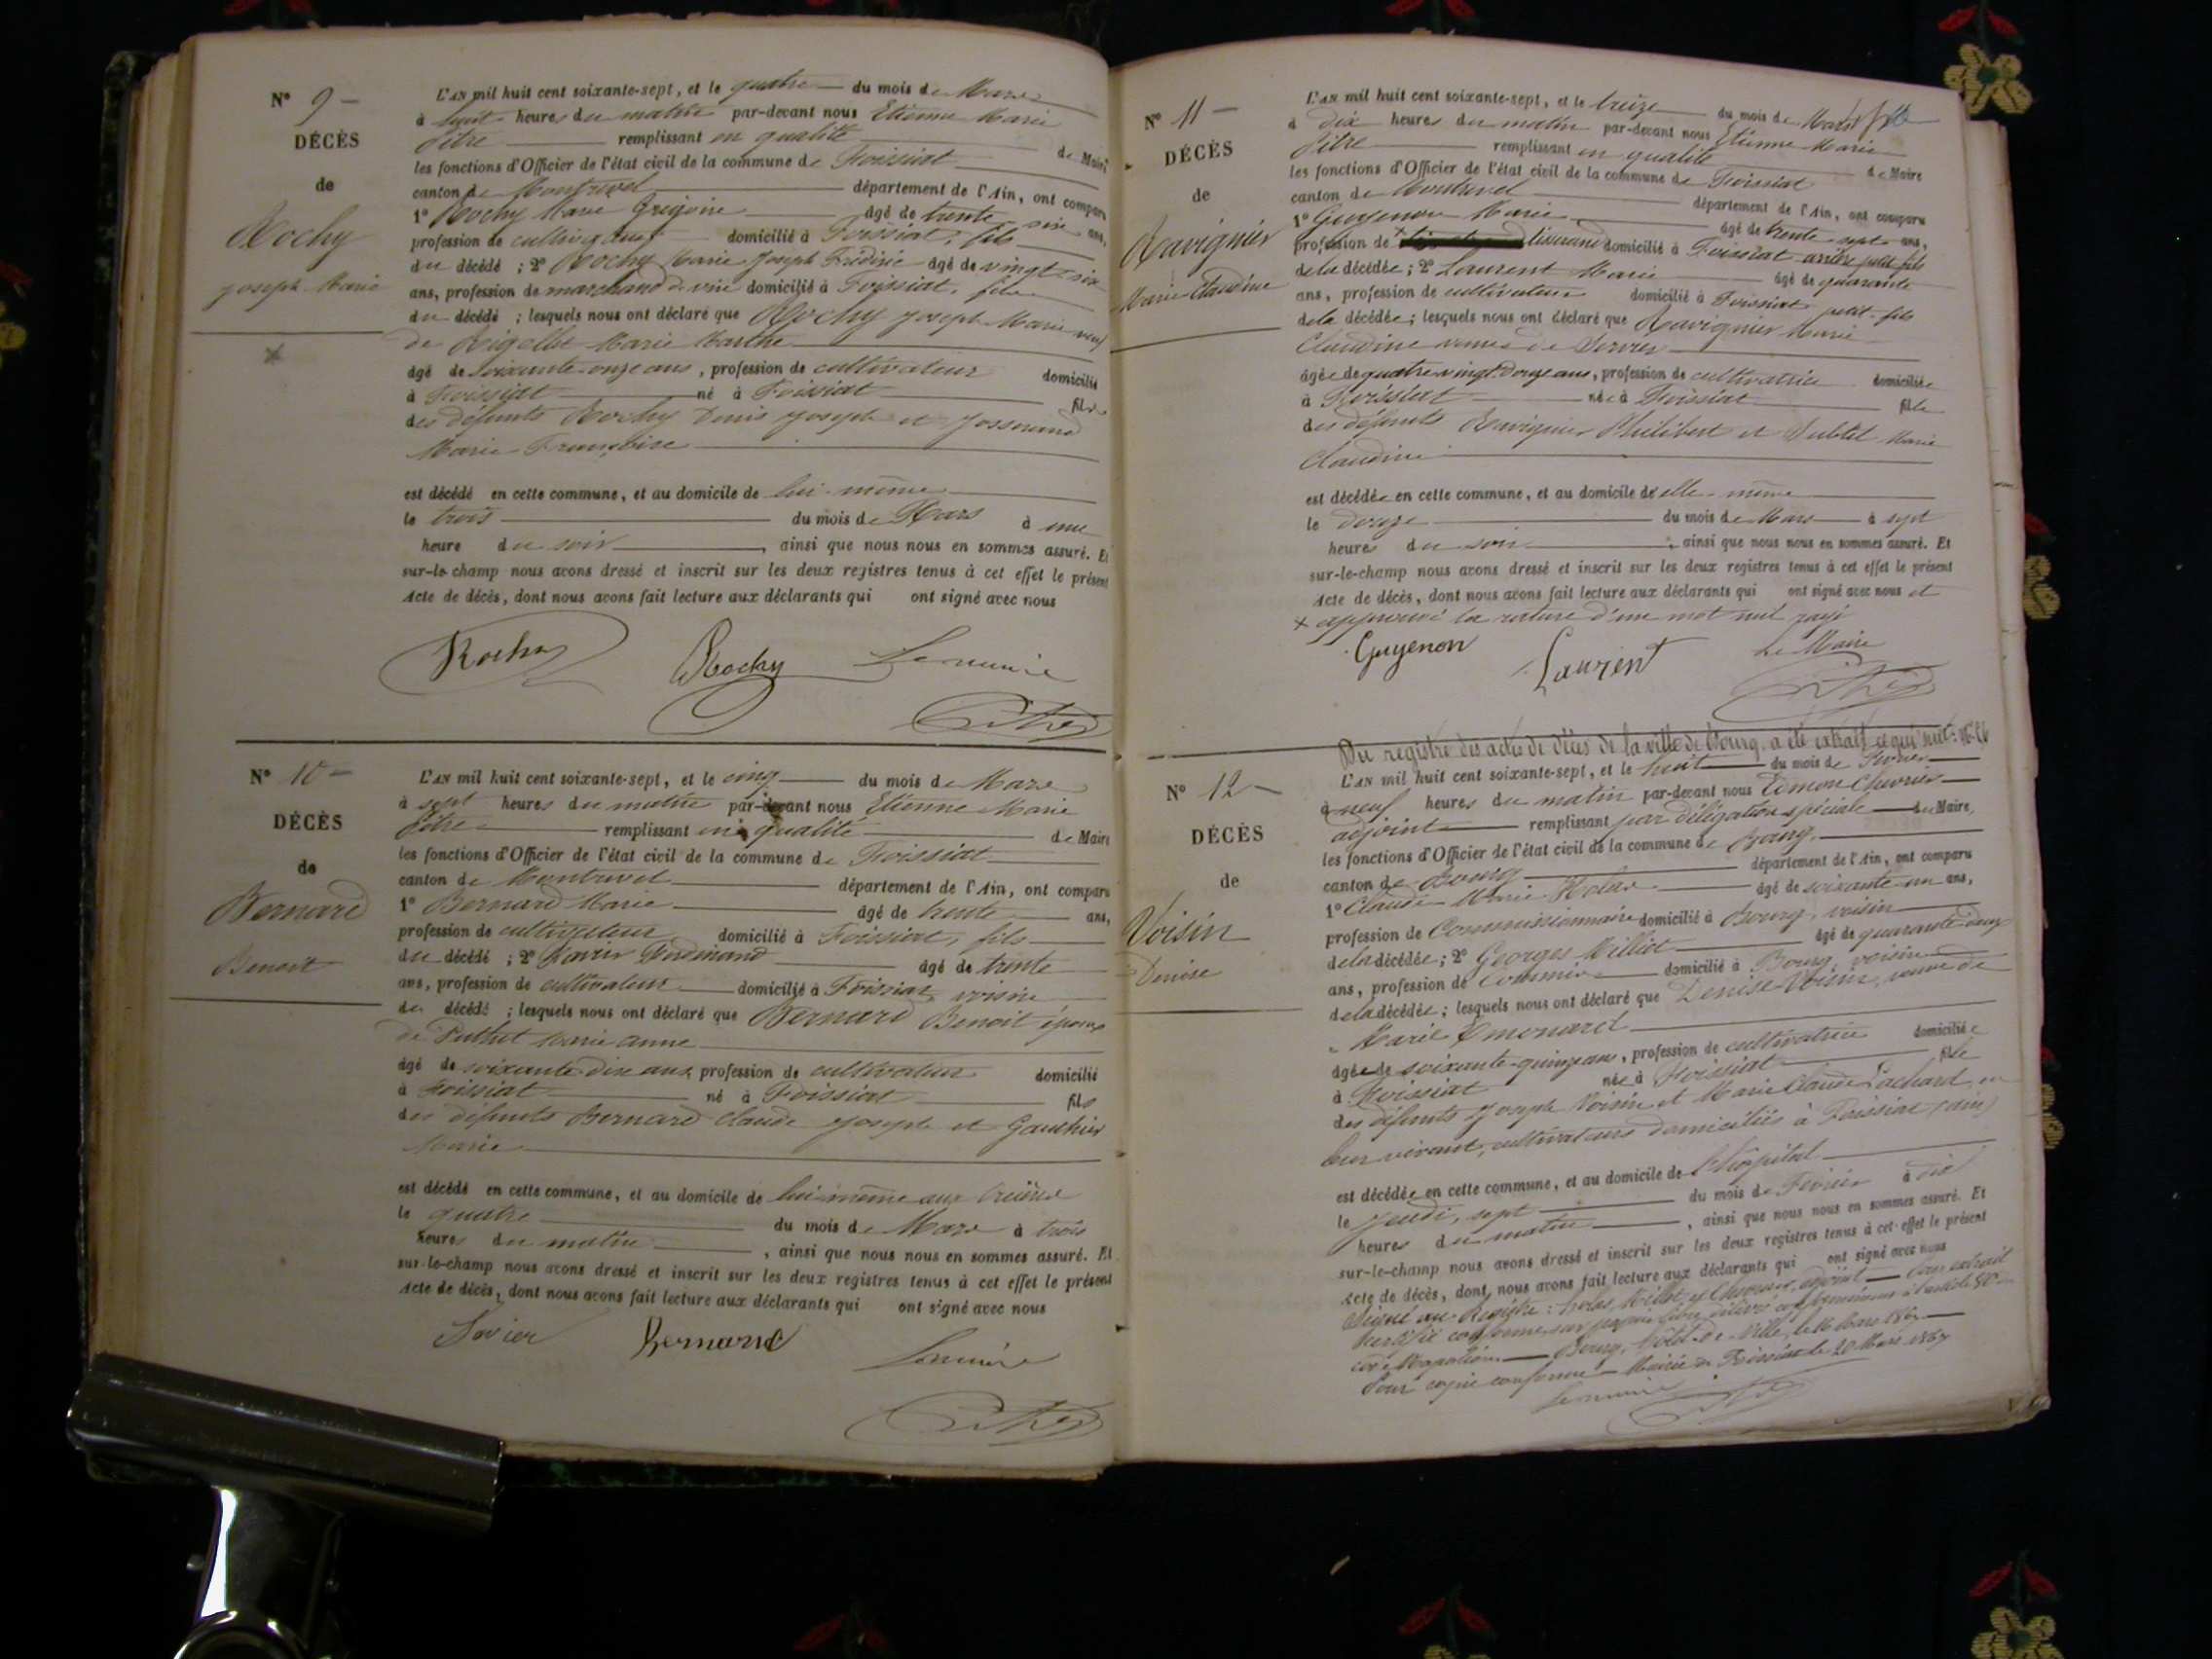 N° 9
DÉCÈS
de
Rochy
Joseph Marie
L'AN mil huit cent soixante-sept, et le quatre du mois de Mars
à huit heures du matin par-devant nous Etienne Marie
Pitre remplissant en qualité de Maire
les fonctions d'Officier de l'état civil de la commune de Foissiat
canton de Montrevel département de l'Ain, ont comparu
1° Rochy Marie Grégoire âgé de trente six ans,
profession de cultivateur domicilié à Foissiat, fils
du décédé ; 2° Rochy Marie Joseph Frédéric âgé de vingt-six
ans, profession de marchand de vin domicilié à Foissiat, fils
du décédé ; lesquels nous ont déclaré que Rochy Joseph Marie veuf
de Marie Marthe
âgé de soixante-onze ans, profession de cultivateur domicilié
à Foissiat né à Foissiat fils
des défunts Rochy Denis Joseph et Josserand
Marie Françoise
est décédé en cette commune, et au domicile de lui-même
le trois du mois de Mars à une
heure du soir, ainsi que nous nous en sommes assuré. Et
sur-le-champ nous avons dressé et inscrit sur les deux registres tenus à cet effet le présent
Acte de décès, dont nous avons fait lecture aux déclarants qui ont signé avec nous
Rochy Rochy Le maire
Pitre
N° 10
DÉCÈS
de
Bernard
Benoit
L'AN mil huit cent soixante-sept, et le cinq du mois de Mars
à sept heures du matin par-devant nous Etienne Marie
Pitre remplissant en qualité de Maire
les fonctions d'Officier de l'état civil de la commune de Foissiat
canton de Montrevel département de l'Ain, ont comparu
1° Bernard Marie âgé de trente ans,
profession de cultivateur domicilié à Foissiat, fils
du décédé ; 2° Ferdinand âgé de trente
ans, profession de cultivateur domicilié à Foissiat, voisin
du décédé ; lesquels nous ont déclaré que Bernard Benoit époux
de Marie Anne
âgé de soixante-dix ans, profession de cultivateur domicilié
à Foissiat né à Foissiat fils
des défunts Bernard Claude Joseph et Gauthier
Marie
est décédé en cette commune, et au domicile de lui-même aux
le quatre du mois de Mars à trois
heures du matin, ainsi que nous nous en sommes assuré. Et
sur-le-champ nous avons dressé et inscrit sur les deux registres tenus à cet effet le présent
Acte de décès, dont nous avons fait lecture aux déclarants qui ont signé avec nous
Bernard Le maire
Pitre
N° 11
DÉCÈS
de
Ravignier
Marie Claudine
L'AN mil huit cent soixante-sept, et le treize du mois de Mars
à dix heures du matin par-devant nous Etienne Marie
Pitre remplissant en qualité de Maire
les fonctions d'Officier de l'état civil de la commune de Foissiat
canton de Montrevel département de l'Ain, ont comparu
1° Guyenon Marie âgé de trente-sept ans,
profession de × tisserand domicilié à Foissiat arrière petit fils
de la décédée ; 2° Laurent Marie âgé de quarante
ans, profession de cultivateur domicilié à Foissiat petit-fils
de la décédée ; lesquels nous ont déclaré que Ravignier Marie
Claudine veuve de
âgée de quatre-vingt-douze ans, profession de cultivatrice domiciliée
à Foissiat née à Foissiat fille
des défunts Ravignier Philibert et Marie
Claudine
est décédée en cette commune, et au domicile de elle-même
le douze du mois de Mars à sept
heures du soir, ainsi que nous nous en sommes assuré. Et
sur-le-champ nous avons dressé et inscrit sur les deux registres tenus à cet effet le présent
Acte de décès, dont nous avons fait lecture aux déclarants qui ont signé avec nous et
× approuvé la rature d'un mot nul rayé
Guyenon Laurent Le Maire
Pitre
Du registre des actes de décès de la ville de Bourg a été extrait ce qui suit :
N° 12
DÉCÈS
de
Voisin
Denise
L'AN mil huit cent soixante-sept, et le huit du mois de Février
à neuf heures du matin par-devant nous Edmon Chevrier
adjoint remplissant par délégation spéciale du Maire,
les fonctions d'Officier de l'état civil de la commune de Bourg
canton de Bourg département de l'Ain, ont comparu
1° Claude Marie âgé de soixante-un ans,
profession de Commissionnaire domicilié à Bourg, voisin
de la décédée ; 2° Georges Milliet âgé de quarante-deux
ans, profession de Commis domicilié à Bourg, voisin
de la décédée ; lesquels nous ont déclaré que Denise Voisin, veuve de
Marie
âgée de soixante-quinze ans, profession de cultivatrice domiciliée
à Foissiat née à Foissiat fille
des défunts Joseph Voisin et Marie Claude en
leur vivant, cultivateurs domiciliés à Foissiat (Ain)
est décédée en cette commune, et au domicile de l'hôpital
le jeudi, sept du mois de Février à dix
heures du matin, ainsi que nous nous en sommes assuré. Et
sur-le-champ nous avons dressé et inscrit sur les deux registres tenus à cet effet le présent
Acte de décès, dont nous avons fait lecture aux déclarants qui ont signé avec nous
Signé au Registre : Chevrier, adjoint Pour extrait
certifié conforme sur papier libre délivré conformément à l'article 80 du
code Napoléon Bourg, Hôtel de Ville, le 16 Mars 1867
Pour copie conforme Mairie de Foissiat le 20 Mars 1867
Le maire Pitre